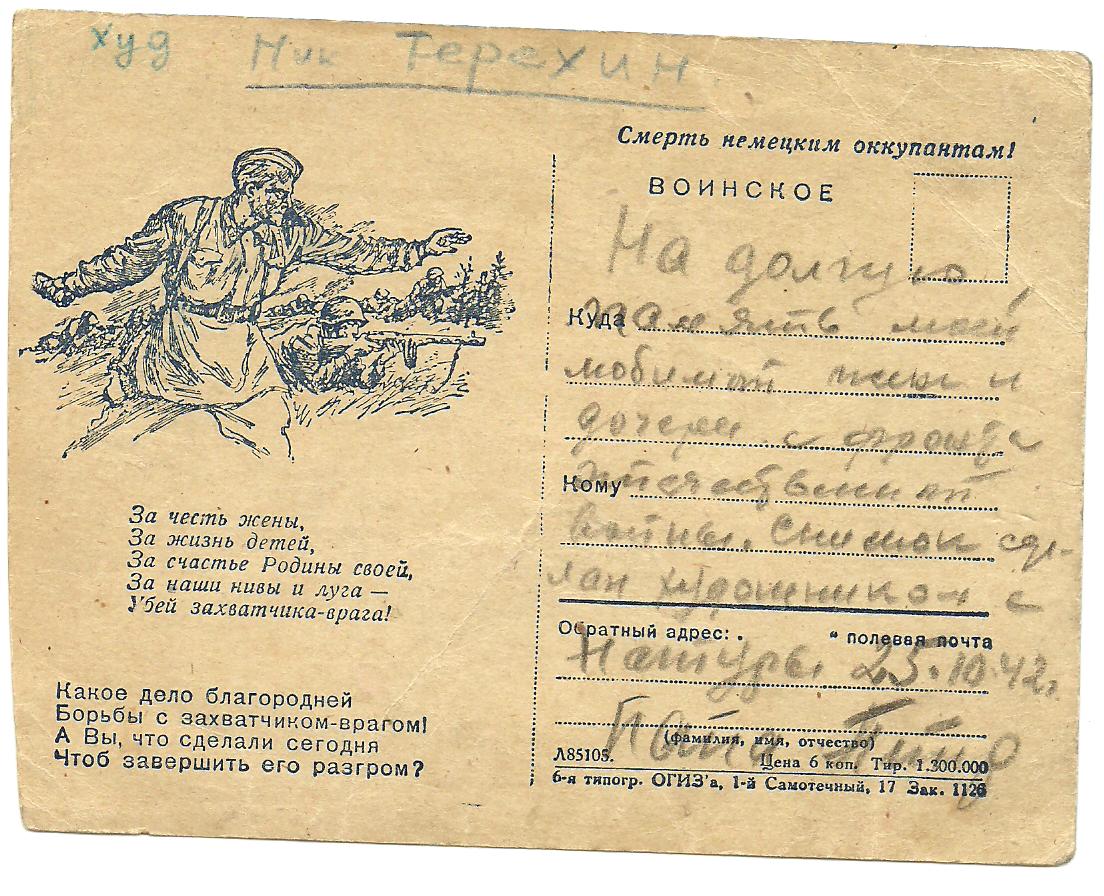 худ Мик Терехин
Смерть немецким оккупантам!
ВОИНСКОЕ
На долгую
Куда
память моей
любимой жены и
дочери с фронта
Кому
отечественной
войны. Снимок сде-
лан художником с
Обратный адрес:
полевая почта
натуры 25.10.42г.
Папа
(фамилия, имя, отчество)
Л85105. Цена 6 коп. Тир. 1.300.000
6-я типогр. ОГИЗ'а, 1-й Самотечный, 17 Зак. 1126
За честь жены,
За жизнь детей,
За счастье Родины своей,
За наши нивы и луга —
Убей захватчика-врага!
Какое дело благородней
Борьбы с захватчиком-врагом!
А Вы, что сделали сегодня
Чтоб завершить его разгром?